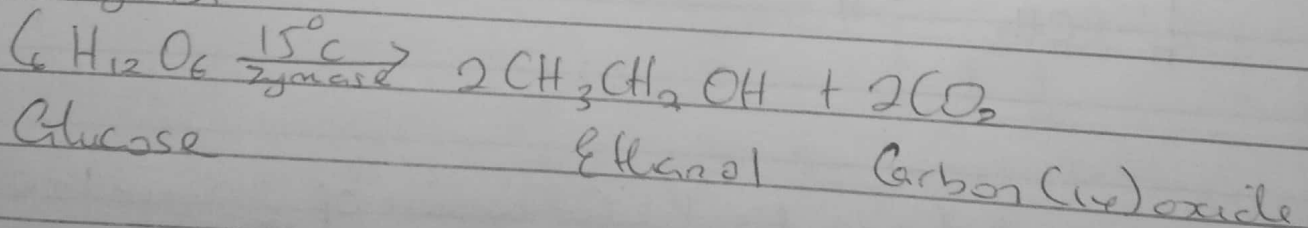 C₆H₁₂O₆ 15°C zymase → 2CH₃CH₂OH + 2CO₂
Glucose Ethanol Carbon(iv)oxide